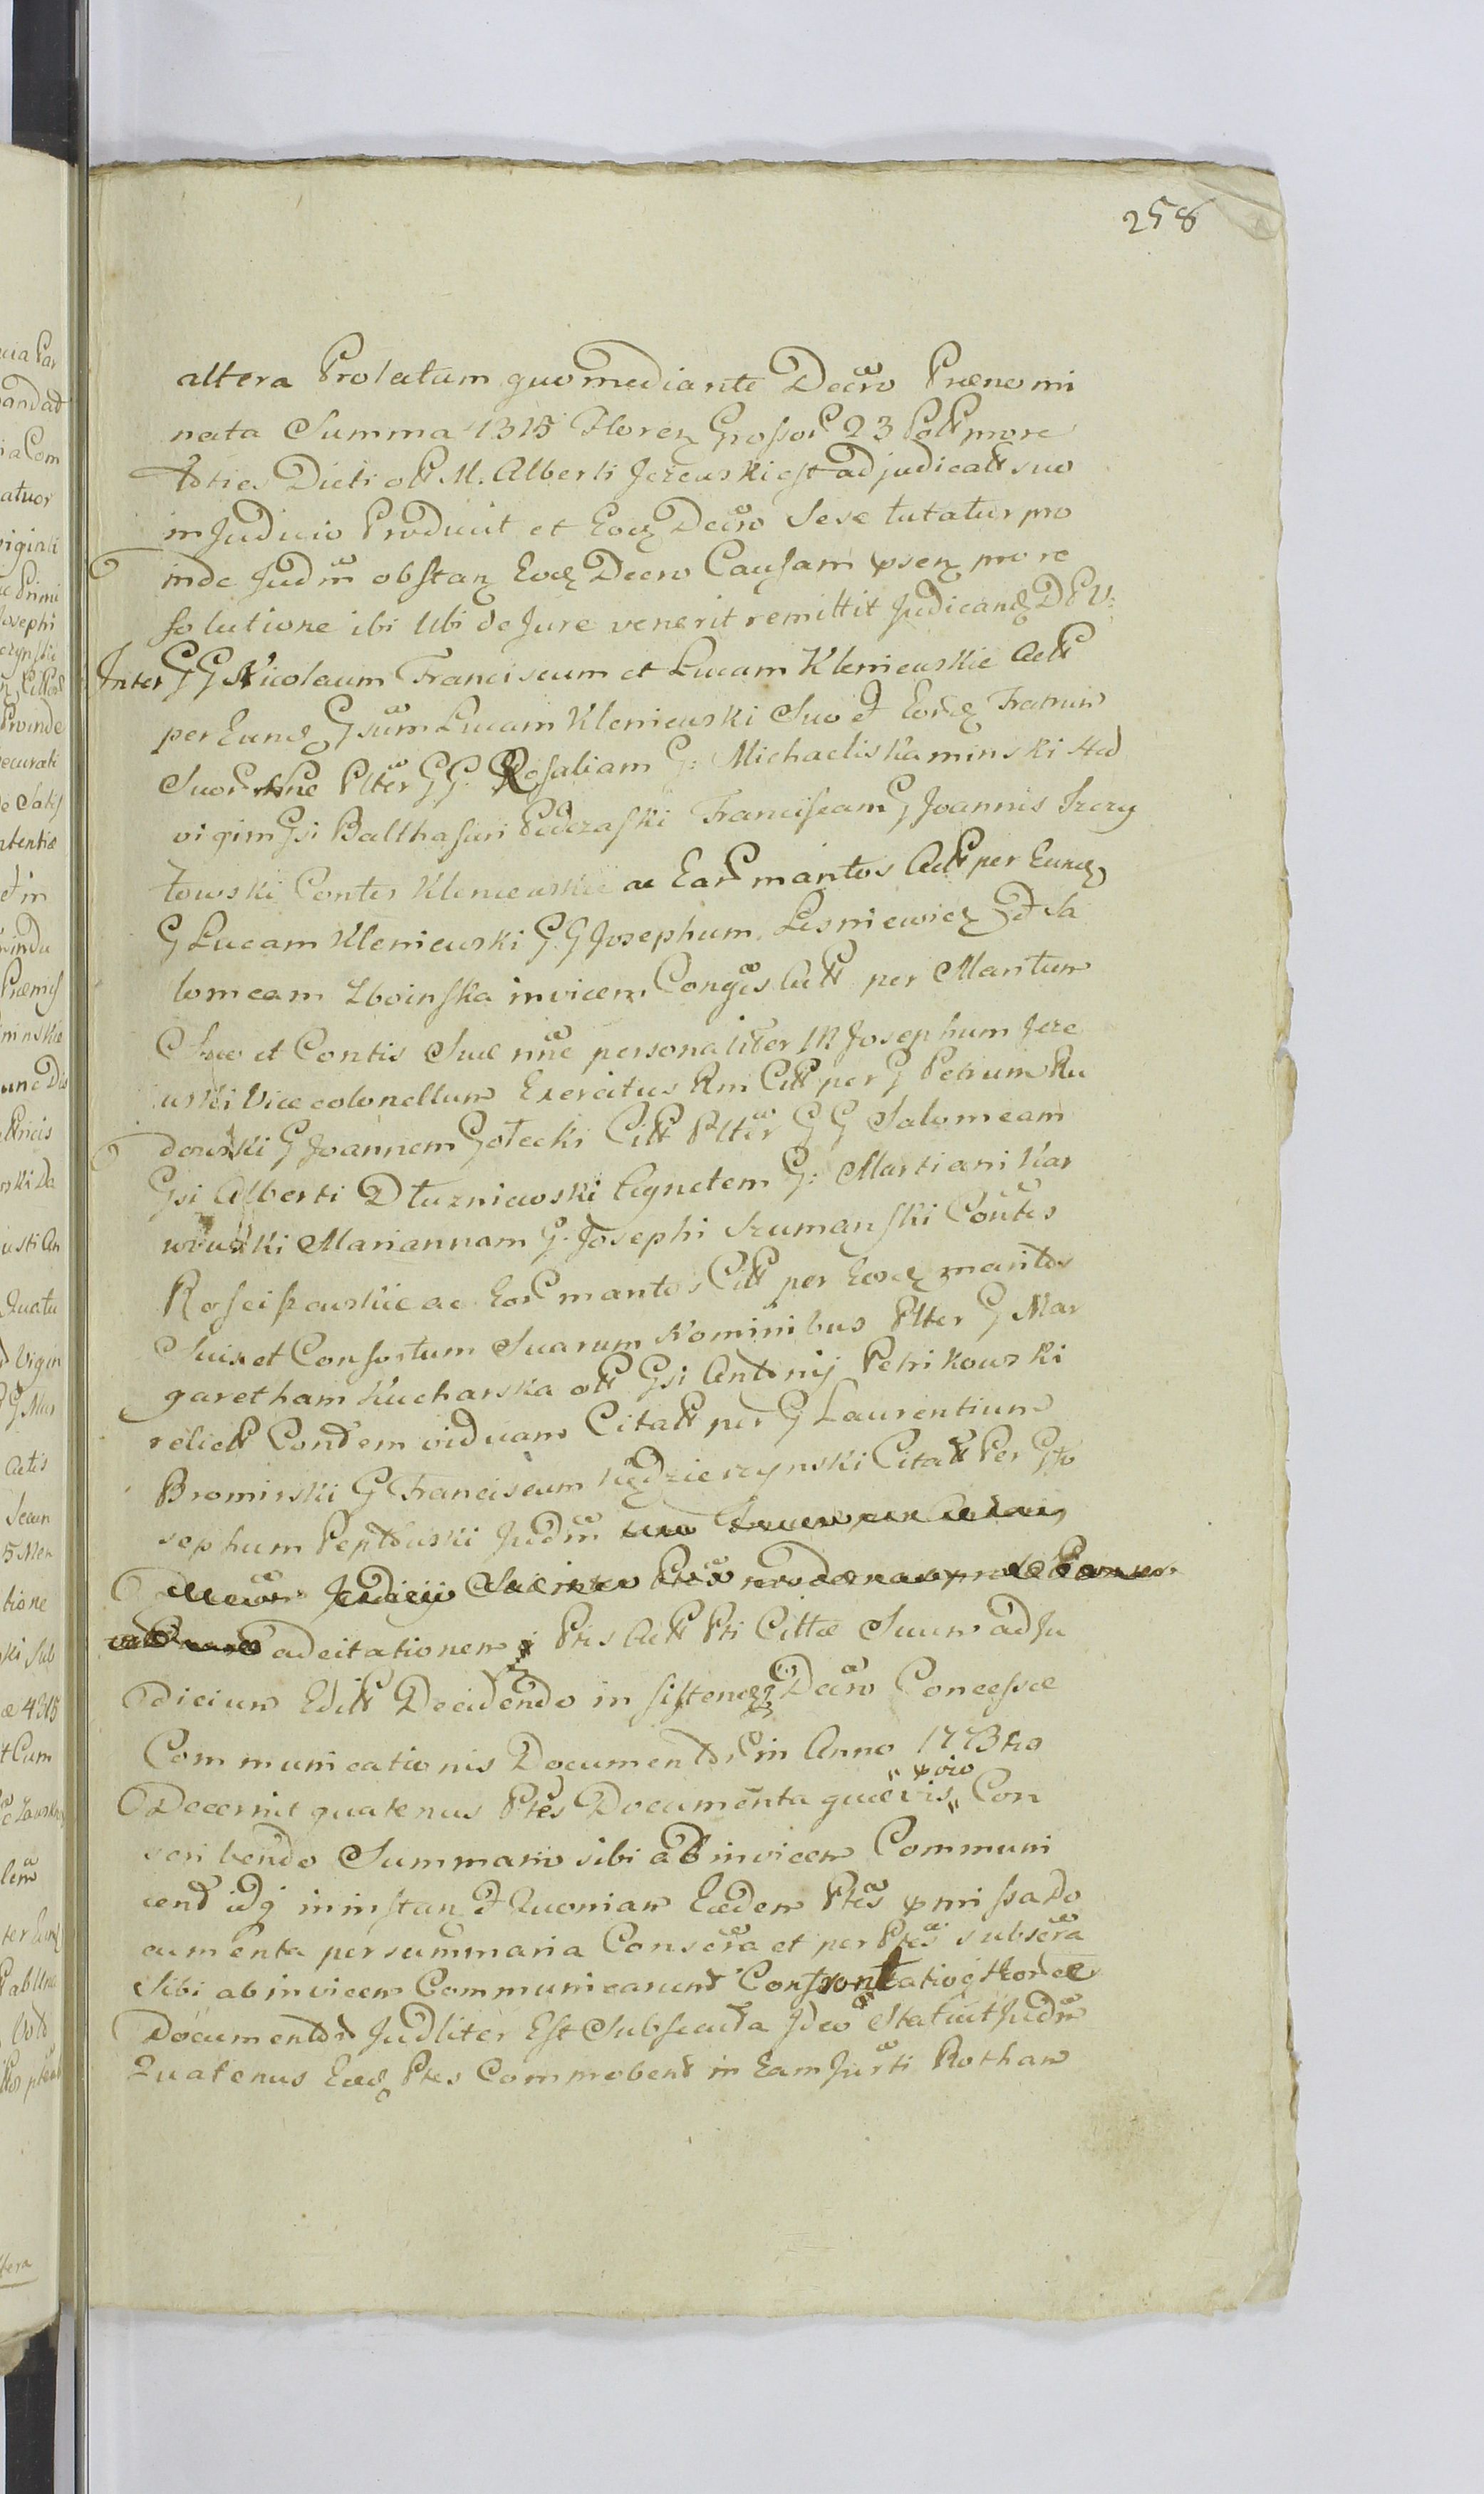 258
altera Prolatum quo mediante Decro Præno mi
nata Summa 1315 Floren Grossor 23 Poll more
toties Dicti olt M. Alberti Jezewski est adjudicatt suo
in Judicio Producit et Eodz Decro Sese tutatur pro
inde Judm obstan Eodz Decro Causam psen pro re
solutione ibi Ubi de Jure venerit remittit Judicand D P V:
Inter GG Nicolaum Franciscum et Lucam Kleniewskie Actt
per Eund Gsum Lucam Kleniewski Suo et Eord Fratrum
Suor nne Plter GG. Rosaliam G: Michaelis Kaminski Hed
vigim Gsi Balthasari Podczaski Franciscam G Joannis Szczy
towski Contes Kleniewskie ac Ear maritos Actt per Eund
G Lucam Kleniewski G.G Josephum Lesniewicz et Sa
lomeam Zboinska invicem Conges Actt per Maritum
Suo et Contis Suæ nne personaliter M Josephum Jeze
wski Vice colonellum Exercitus Rni Citt per G Petrum Ru
dowski G Joannem Gołecki Citt Plter GG Salomeam
Gsi Alberti Dłuzniewski Agnetem G: Martiani Kar
wowski Mariannam G. Josephi Szumanski Contes
Rosciszewskie ac Ear maritos Citt per Eosd maritos
Suis et Consortum Suarum Nominibus Plter G Mar
garetham Kucharska olt Gsi Antonij Petrikowski
relictt Contem viduam Citatt per G Laurentium
Bromirski G Franciscum Kędzierzynski Citatt Per G Jo
sephum Peptowski Judm
ad citationem Ptis Actt Pti Cittæ Suum ad Ju
dicium Editt Decidendo in sistend Decro Concessæ
Communicationis Documentor in Anno 1773tio
Decernit quatenus Ptes Documenta quævis „ pvio „ Con
scribendo Summario sibi ab invicem Communi
cent idq in instan et Quoniam Eædem Ptes pmissa Do
cumenta per summaria Conscra et per Ptes subscra
Sibi ab invicem Communicarunt Confrontatioq Eorde
Documentor Judliter Est Subsecuta Ideo Statuit Judm
Quatenus Eæd Ptes Commobent in Eam Jurti Rotham